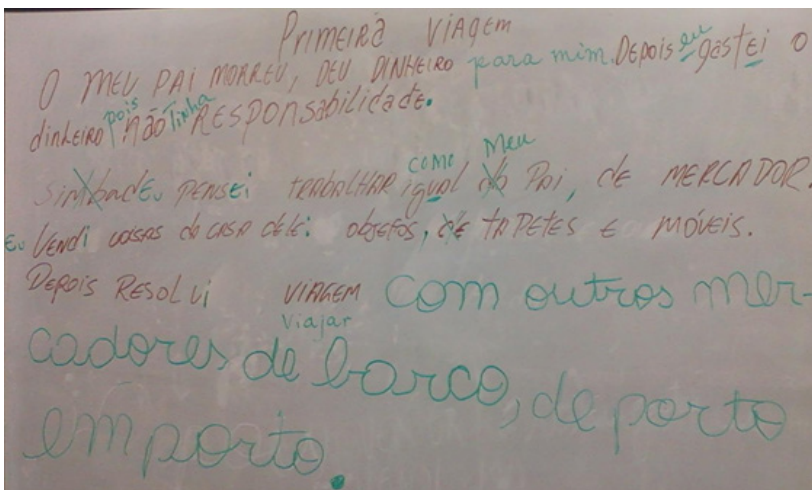 Primeira Viagem
O MEU PAI MORREU, DEU DINHEIRO para mim. Depois eu gastei o
dinheiro pois não tinha RESPONSabilidade.
Sinbad Eu PENSEI TRABALHAR igual como do Meu Pai, de MERCADOR.
Eu Vendi coisas da CASA dele: objetos, de TAPETES E MÓVEIS.
DEPOIS RESOLVi VIAGEM Viajar com outros mer-
cadores de barco, de porto
em porto.